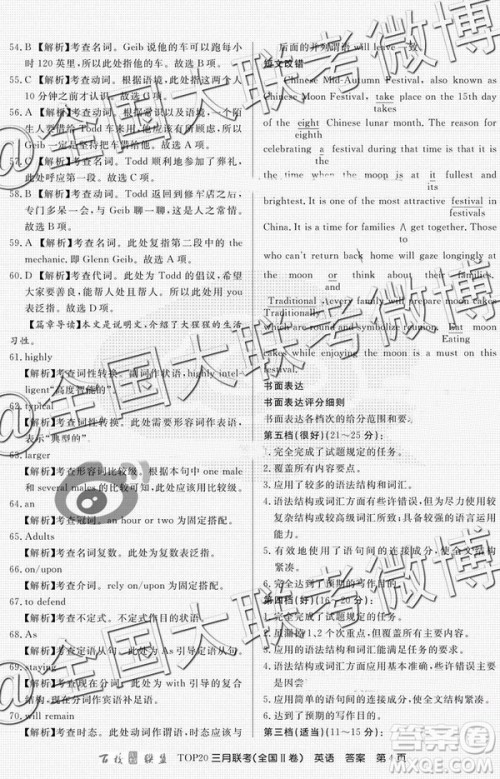 54. B 【解析】考查名词。Geib 说他的车可以跑每小
时 120 英里,所以故选 B 项。
55. C 【解析】考查动词。根据语境,
10 分钟之前才认识。故选 C 项。
56. A 【解析】考查动词。根据常识以及语境,一个陌
生人
Geib 一定是坚持把车借给他。故选 A 项。
57. C 【解析】考查动词。Todd 顺利地参加了葬礼,
此处呼应第一段。故选 C 项。
58. B 【解析】考查动词。Todd 返回到修车店之后,
专门多呆一会,与 Geib 聊一聊,这是人之常情。
故选 B 项。
59. A 【解析】考查名词。此处复指第二段中的 the
mechanic, 即 Glenn Geib。
60. D 【解析】考查代词。此处 Todd 的倡议,希望
大家要善良,能帮忙就帮忙,此处表泛指。故选
D 项。
【篇章导读】本文是说明文,介绍了大猩猩的生活
习性。
61. highly
【解析】考查词性转换。副词作状语,highly intel-
ligent“高度智能的”。
62. typical
【解析】考查词性转换。此处需要形容词作表语,
表示“典型的”。
63. larger
【解析】考查形容词比较级。根据本句中 one male
和 several males 的比较可知,此处应该用比较级。
64. an
【解析】考查冠词。an hour or two 为固定搭配。
65. Adults
【解析】考查名词复数。此处为复数表泛指。
66. on/upon
【解析】考查介词。rely on/upon 为固定搭配。
67. to defend
【解析】考查不定式。不定式作目的状语。
68. As
【解析】考查定语从句。
69. staying
【解析】考查现在分词。此处为 with 引导的复合
结构,现在分词作宾语补足语。
70. will remain
【解析】考查动词时态。此处动词作谓语,时态应与
后面的并列谓语 will leave 一致。
短文改错
Chinese Mid-Autumn Festival, also known as
Chinese Moon Festival, take place on the 15th day
takes
of the eight Chinese lunar month. The reason for
eighth
celebrating a festival during that time is
the time when the moon is at
its
brightest. It is one of the most attractive festival in
festivals
China. It is a day for getting together. Those
who can't return back home will gaze longingly at
the moon or think about their families.
and
Traditional, every family will prepare moon cakes
Traditionally
which are round and symbolize reunion. Eat moon
Eating
cakes while enjoying the moon is a must on this
festival.
书面表达
书面表达评分细则
书面表达各档次的给分范围和要求。
第五档(很好)(21~25 分):
1. 完全完成了试题规定的任务。
2. 覆盖所有内容要点。
3. 应用了较多的语法结构和词汇。
4. 语法结构或词汇方面有些许错误,但为尽力使用较
复杂结构或较高级词汇所致;具备较强的语言运用
能力。
5. 有效地使用了语句间的连接成分,使全文结构
紧凑。
6. 完全达到了预期的写作目的。
第四档(好)(16~20 分):
1. 完全完成了试题规定的任务。
2. 虽漏掉 1、2 个次重点,但覆盖所有主要内容。
3. 应用的语法结构和词汇能满足任务的要求。
4. 语法结构或词汇方面应用基本准确,
5. 应用简单的语句间的连接成分,使全文结构紧凑。
6. 达到了预期的写作目的。
第三档(适当)(11~15 分):
百校联盟 TOP20 三月联考(全国Ⅱ卷) 英语 答案 第 4 页
@全国大联考微博
@全国大联考微博